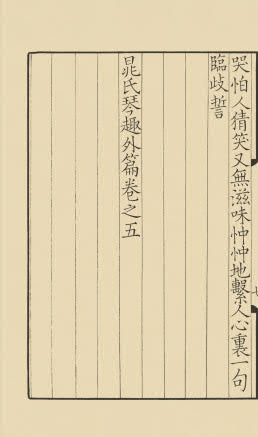 哭怕人猜笑又無滋味忡忡地繫人心裏一句
臨歧誓
晁氏琴趣外篇卷之五